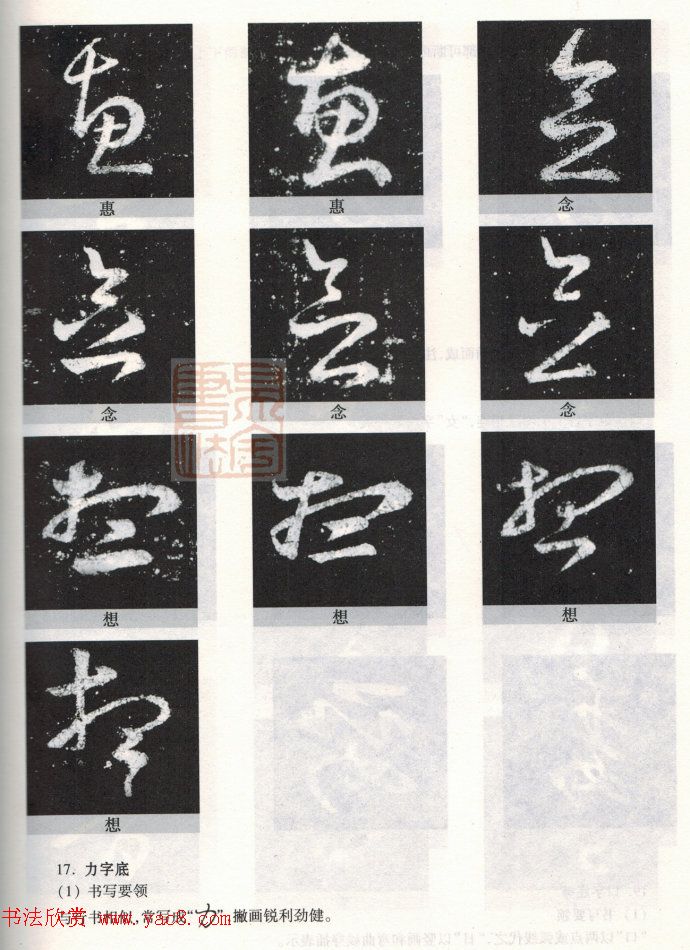 惠 惠 念
念 念 念
想 想 想
想
17. 力字底
(1) 书写要领
与行书相似,常写成“力”,撇画锐利劲健。
书法欣赏 www.yac8.com